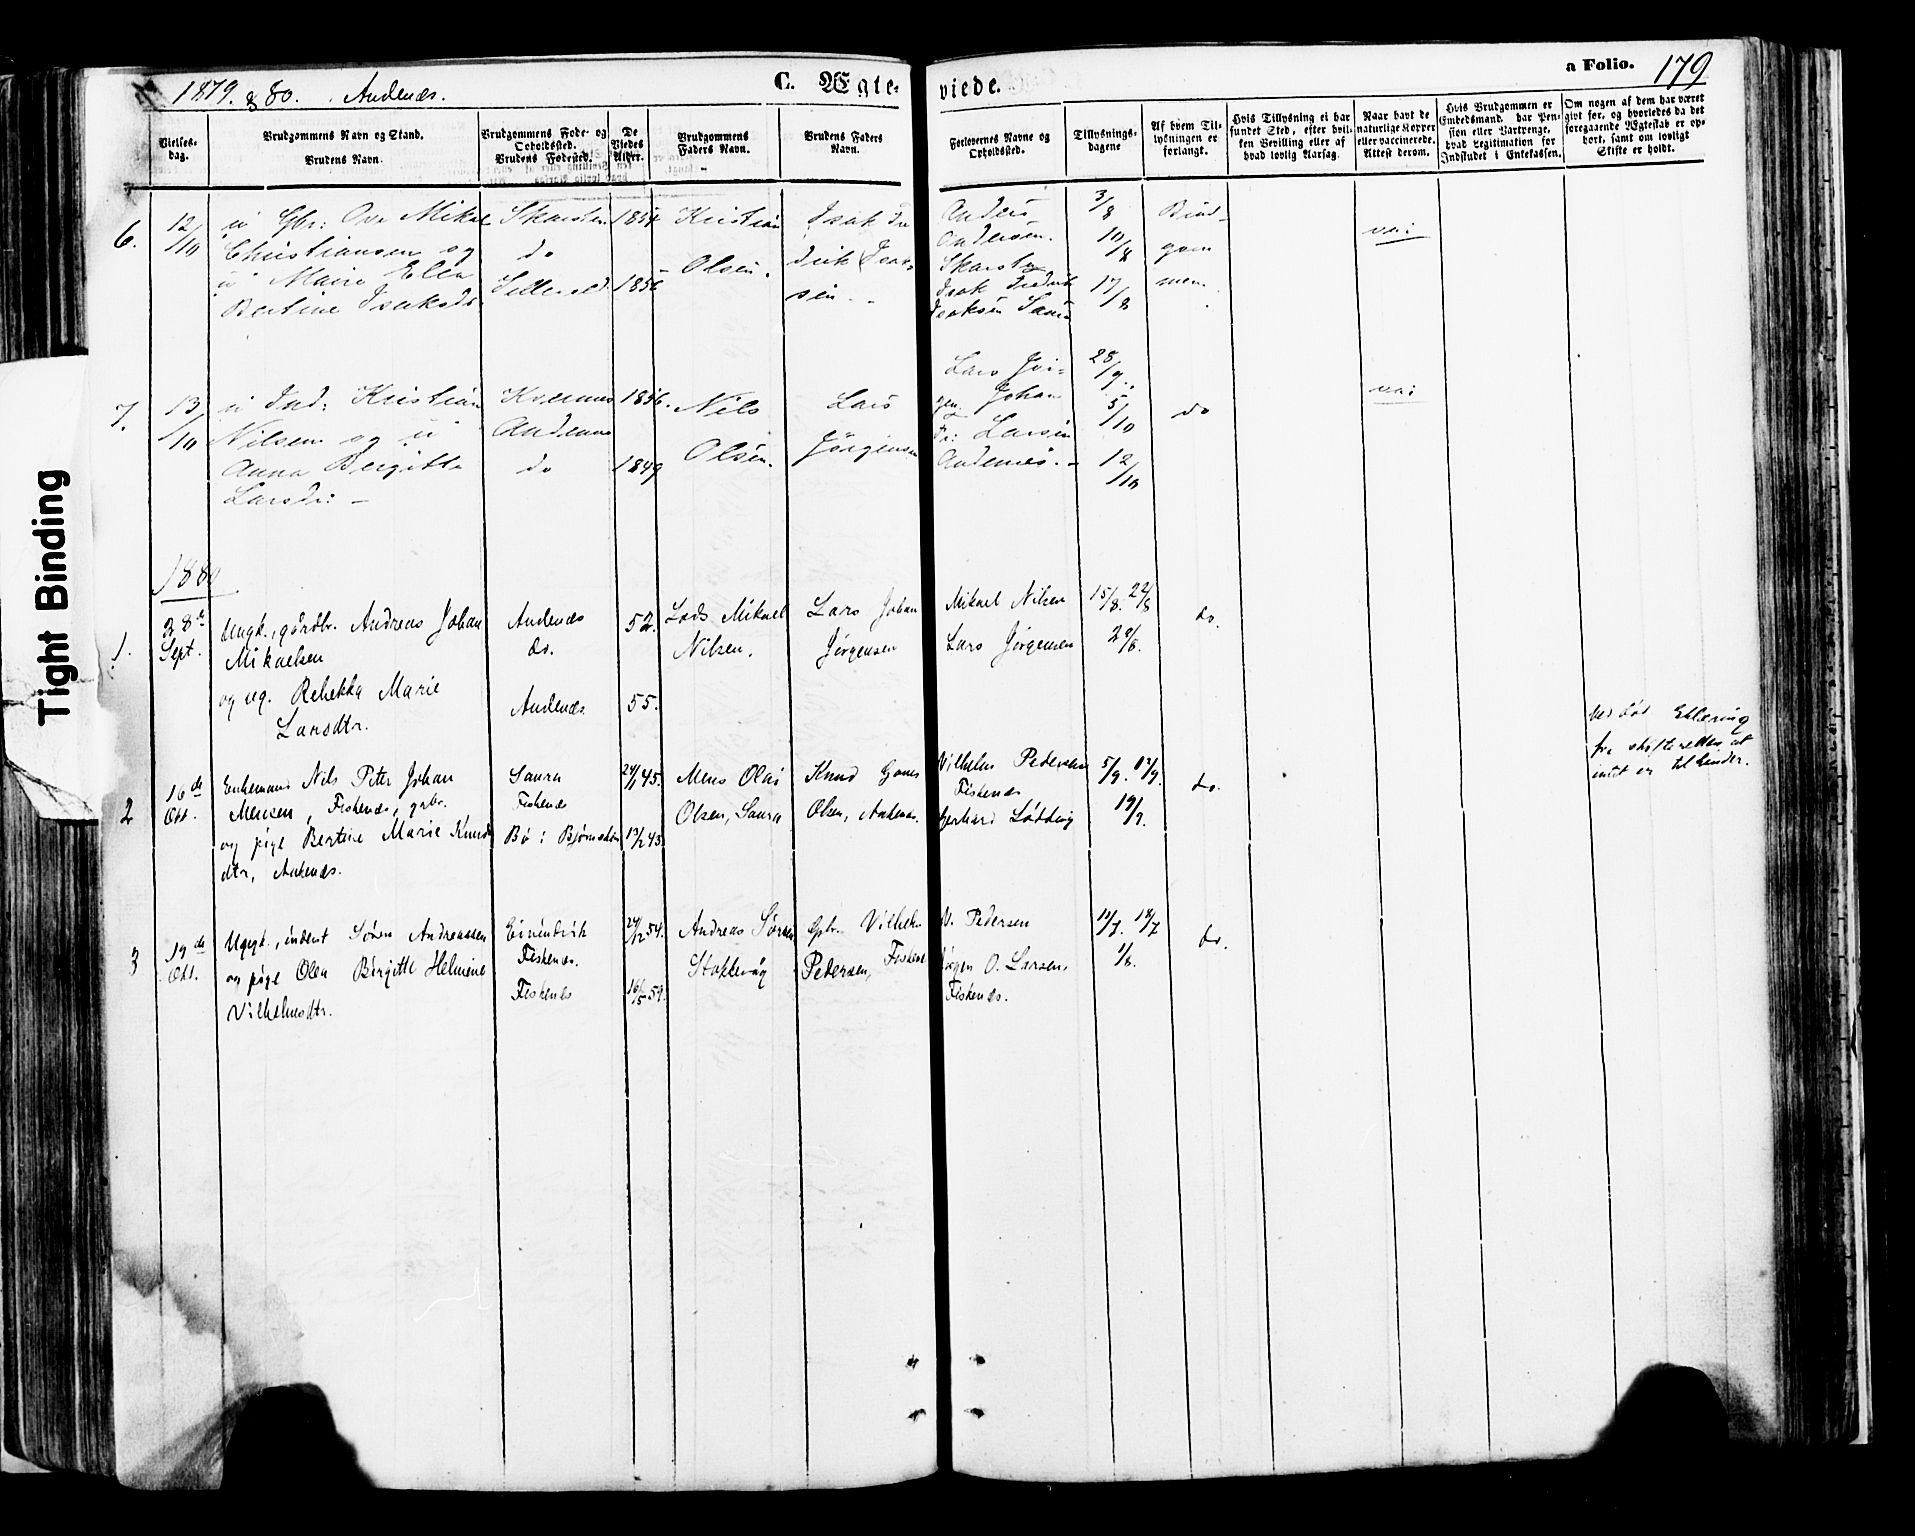 Tight Binding
1879. & 80. Andenæs.
C. Ægte-
viede.
a Folio. 179
Vielses-
dag.
Brudgommens Navn og Stand.
Brudens Navn.
Brudgommens Føde- og
Opholdssted.
Brudens Fødested.
De
Viedes
Alder.
Brudgommens
Faders Navn.
Brudens Faders
Navn.
Forlovernes Navne og
Opholdssted.
Tillysnings-
dagene
Af hvem Til-
lysningen er
forlangt.
Hvis Tillysning ei har
fundet Sted, efter hvil-
ken Bevilling eller af
hvad lovlig Aarsag.
Naar havt de
naturlige Kopper
eller vaccinerede.
Attest derom.
Hvis Brudgommen er
Embedsmand, har Pen-
sion eller Vartpenge,
hvad Legitimation for
Indskudet i Enkekassen.
Om nogen af dem har været
givt før, og hvorledes da det
foregaaende Ægteskab er op-
hørt, samt om lovligt
Skifte er holdt.
6.
12/10
u Gbr: Ove Mikal
Christiansen og
u Marie Elen
Bertine Isaksdr
Skarsten
do
1854
1856
Kristian
Olsen.
Isak Fre
drik Isak-
sen
Anders
Andersen.
Isak Fredrik
Isaksen
3/8
10/8
17/8
Brud-
gom
men
va:
7.
13/10
u Ind: Kristian
Nilsen og u
Anna Bergitte
Larsdr:
Andenes
do
1856.
1849
Nils
Olsen.
Lars
Jørgensen
Lars Jør-
gen Johan
Fr: Larsen
Andenes.
28/9.
5/10
12/10
do
va:
1880
1.
28de
Sept.
Ungk., gårdbr. Andreas Johan
Mikaelsen
og ug. Rebekka Marie
Larsdtr.
Andenæs
do.
Andenæs
52.
55.
Lods Mikael
Nilsen.
Lars Johan
Jørgensen
Mikael Nilsen
Lars Jørgensen
15/8. 22/8
29/8.
do.
2
16de
Okt.
Enkemand Nils Peter Johan
Mensen, Fiskenæs, grbr.
og pige Bertine Marie Knuds
dtr,
Saura
Fiskenæs
Bø i Bjørnskin
24/11 45.
13/2 43
Mens Olai
Olsen, Saura
Knud
Olsen,
Vilhelm Pedersen
Fiskenæs
Gerhard Lødding
5/9. 12/9.
19/9.
do.
erklæring
fra skifteretten at
intet er til hinder.
3
19de
Okt.
Ungk., inderst Søren Andreassen
og pige Olea Birgitte Helmine
Vilhelmsdtr.
Eivindvik
Fiskenæs.
Fiskenæs
24/12 54.
16/5 59.
Andreas Sørensen
Gbr. Vilhelm
Pedersen, Fiskenæs
V. Pedersen
Jørgen O. Larsen,
Fiskenæs.
11/7. 18/7
1/8.
do.